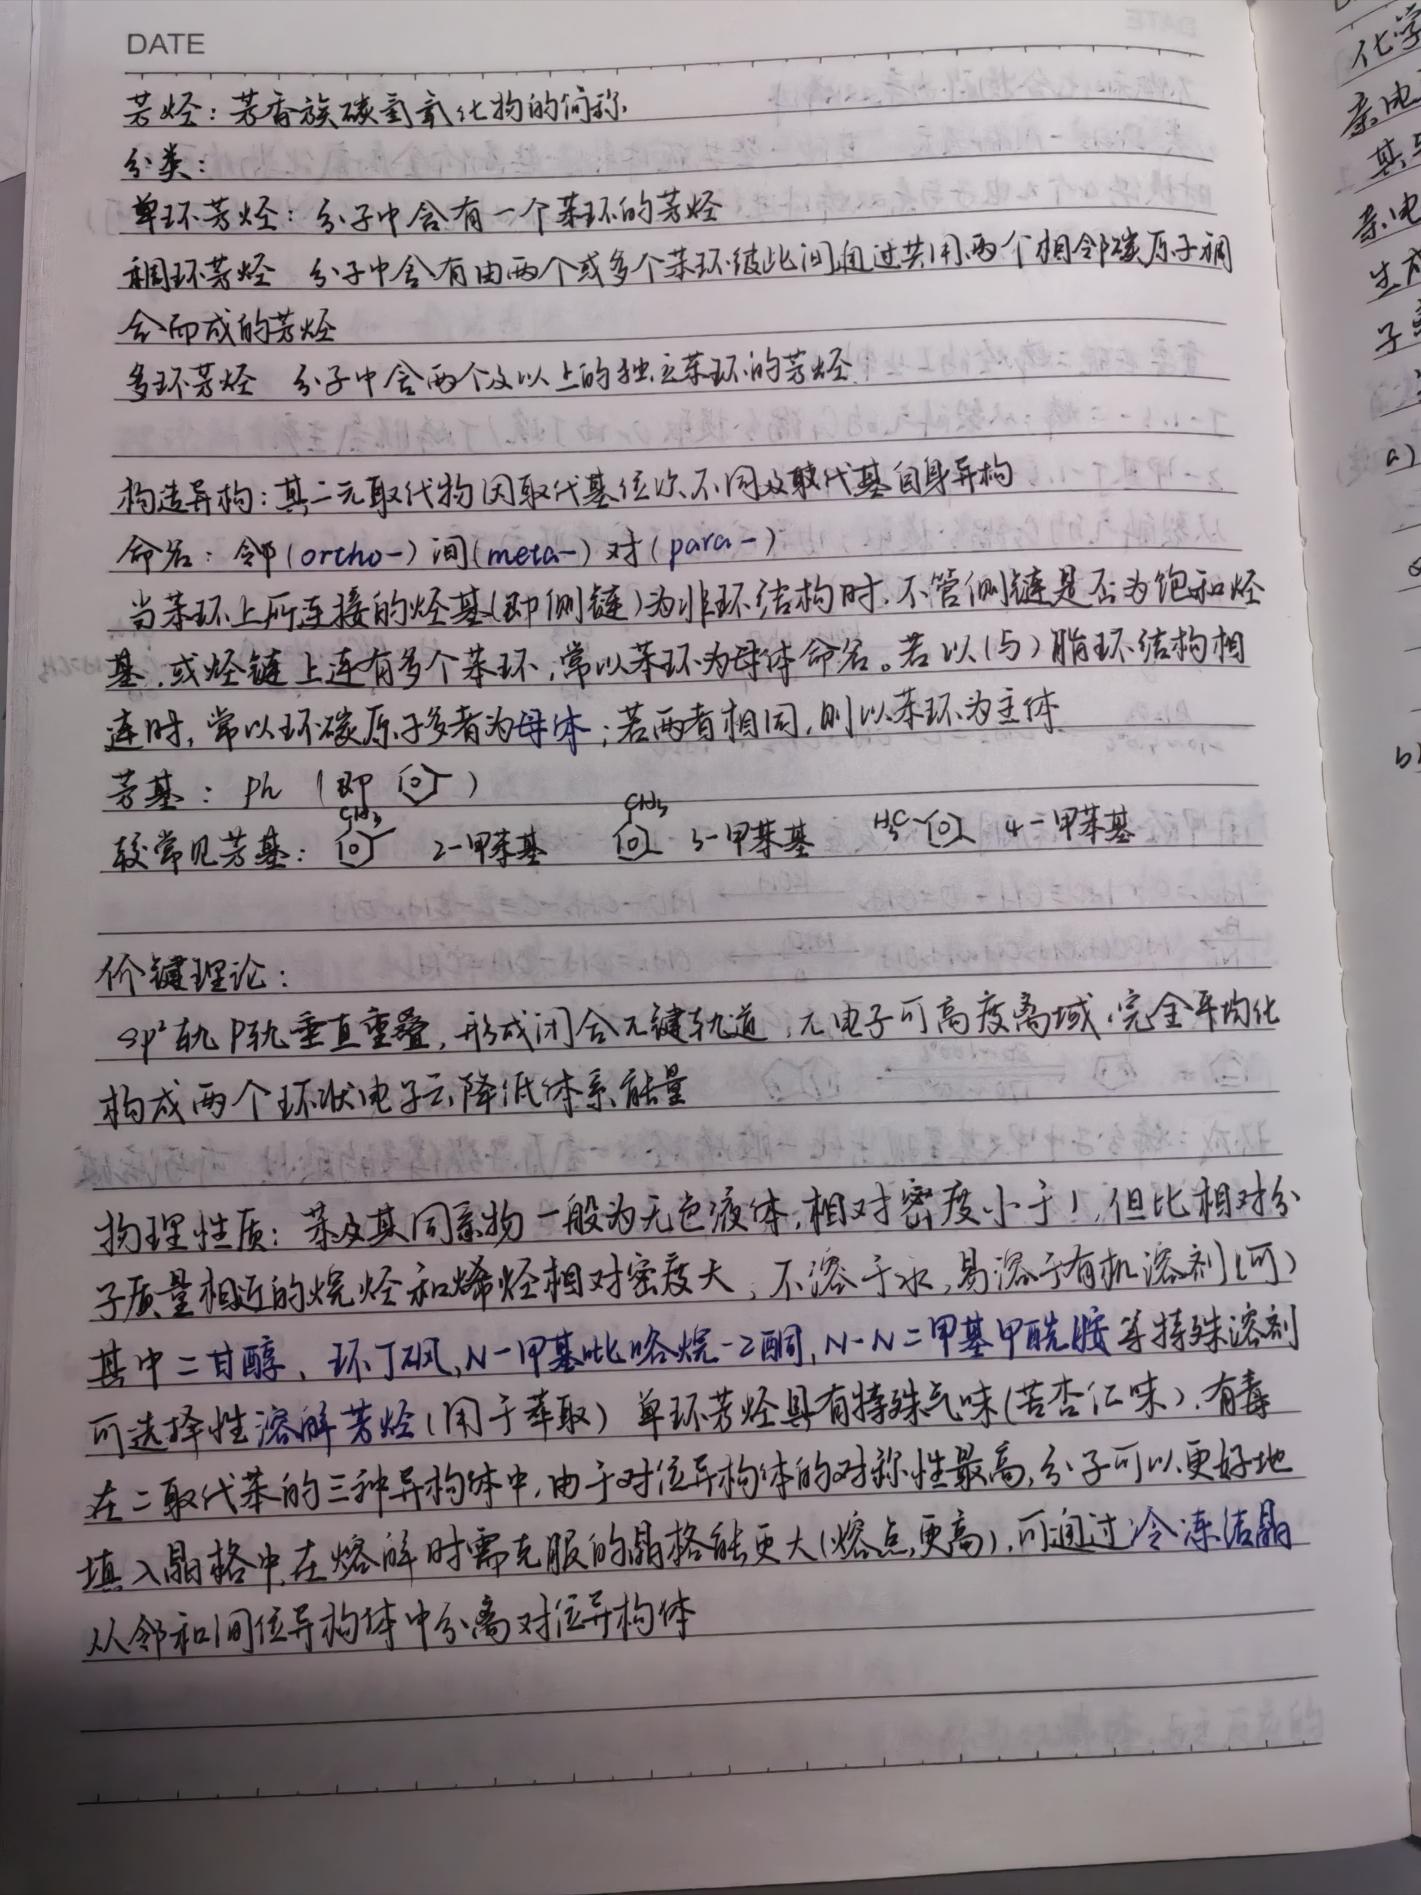 DATE
芳烃：芳香族碳氢氧化物的简称
分类：
单环芳烃：分子中含有一个苯环的芳烃
稠环芳烃 分子中含有由两个或多个苯环彼此间通过共用两个相邻碳原子稠
合而成的芳烃
多环芳烃 分子中含两个及以上的独立苯环的芳烃
构造异构：其二元取代物因取代基位次不同及取代基自身异构
命名：邻(ortho-)间(meta-)对(para-)
当苯环上所连接的烃基(即侧链)为非环结构时，不管侧链是否为饱和烃
基，或烃链上连有多个苯环，常以苯环为母体命名。若以(与)脂环结构相
连时，常以环碳原子多者为母体；若两者相同，则以苯环为主体
芳基：Ph (即 )
CH3 CH3
较常见芳基： 2-甲苯基 3-甲苯基 H3C 4-甲苯基
价键理论：
sp²轨 p轨垂直重叠，形成闭合π键轨道，π电子可高度离域，完全平均化
构成两个环状电子云降低体系能量
物理性质：苯及其同系物一般为无色液体，相对密度小于1，但比相对分
子质量相近的烷烃和烯烃相对密度大，不溶于水，易溶于有机溶剂(可)
其中二甘醇、环丁砜，N-甲基吡咯烷-2酮，N-N二甲基甲酰胺等特殊溶剂
可选择性溶解芳烃(用于萃取) 单环芳烃具有特殊气味(苦杏仁味)，有毒
在二取代苯的三种异构体中，由于对位异构体的对称性最高，分子可以更好地
填入晶格中，在熔解时需克服的晶格能更大(熔点更高)，可通过冷冻结晶
从邻和间位异构体中分离对位异构体
化学
亲电
其
亲电
生成
子
a)
b)